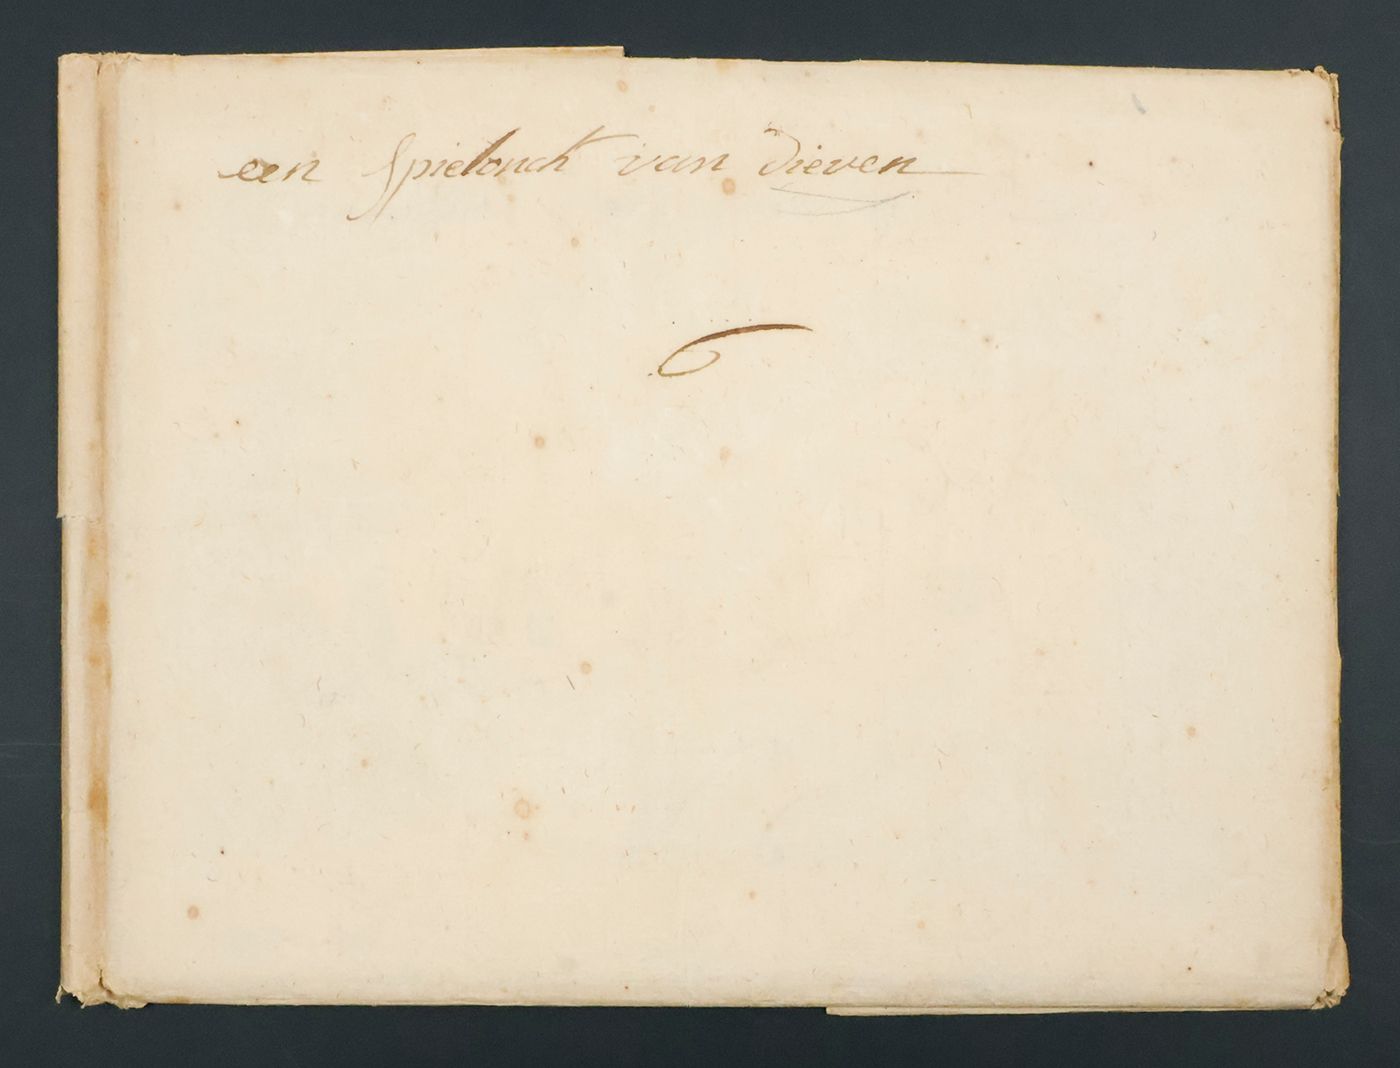 een spielonck van dieven
6